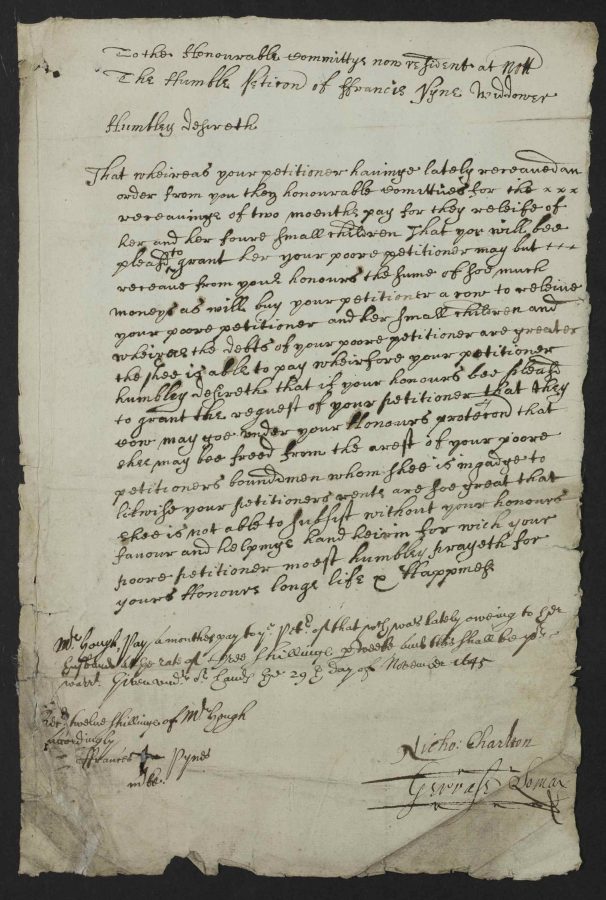 To the Honourable Committye now resident at Nott
The Humble Peticon of ffrancis Pyne Widdower
Humbley desireth
That wheireas your petitioner havinge lately receaved an
order from you they honourable comittues for the xxx
receavinge of two moenths pay for they releife of
her and her foure small children That yor will bee
pleasd to grant her your poore petitioner may but
receave from your honours the sume of soe much
moneys as will buy your petitioner a cow to releive
your poore petitioner and her small children and
wheireas the debts of your poore petitioner are greater
the shee is able to pay wheirfore your petitioner
humbley desireth that if your honours bee pleasd
to grant the request of your petitioner that they
cow may goe under your Honours protecond that
shee may bee freed from the arest of your poore
petitioners boundmen whom shee is ingadge to
likwise your petitioners rents are soe great that
shee is not able to subsist without your honours
favour and helpinge hand heirin for wich your
poore petitioner moest humbley prayeth for
yours Honours longe life & Happines
Mr Hough. Pay a monthes pay to ye Petr of that wch was lately oweing to her
husband at the rate of three shillinge p weeke and this shall be yor
warrt. Given undr or hands the 29th day of November 1645
Recd twelve shillinge of Mr Hough
accordingly
ffrances Pynes
mke
Nicho: Charlton
Gervase Lomax